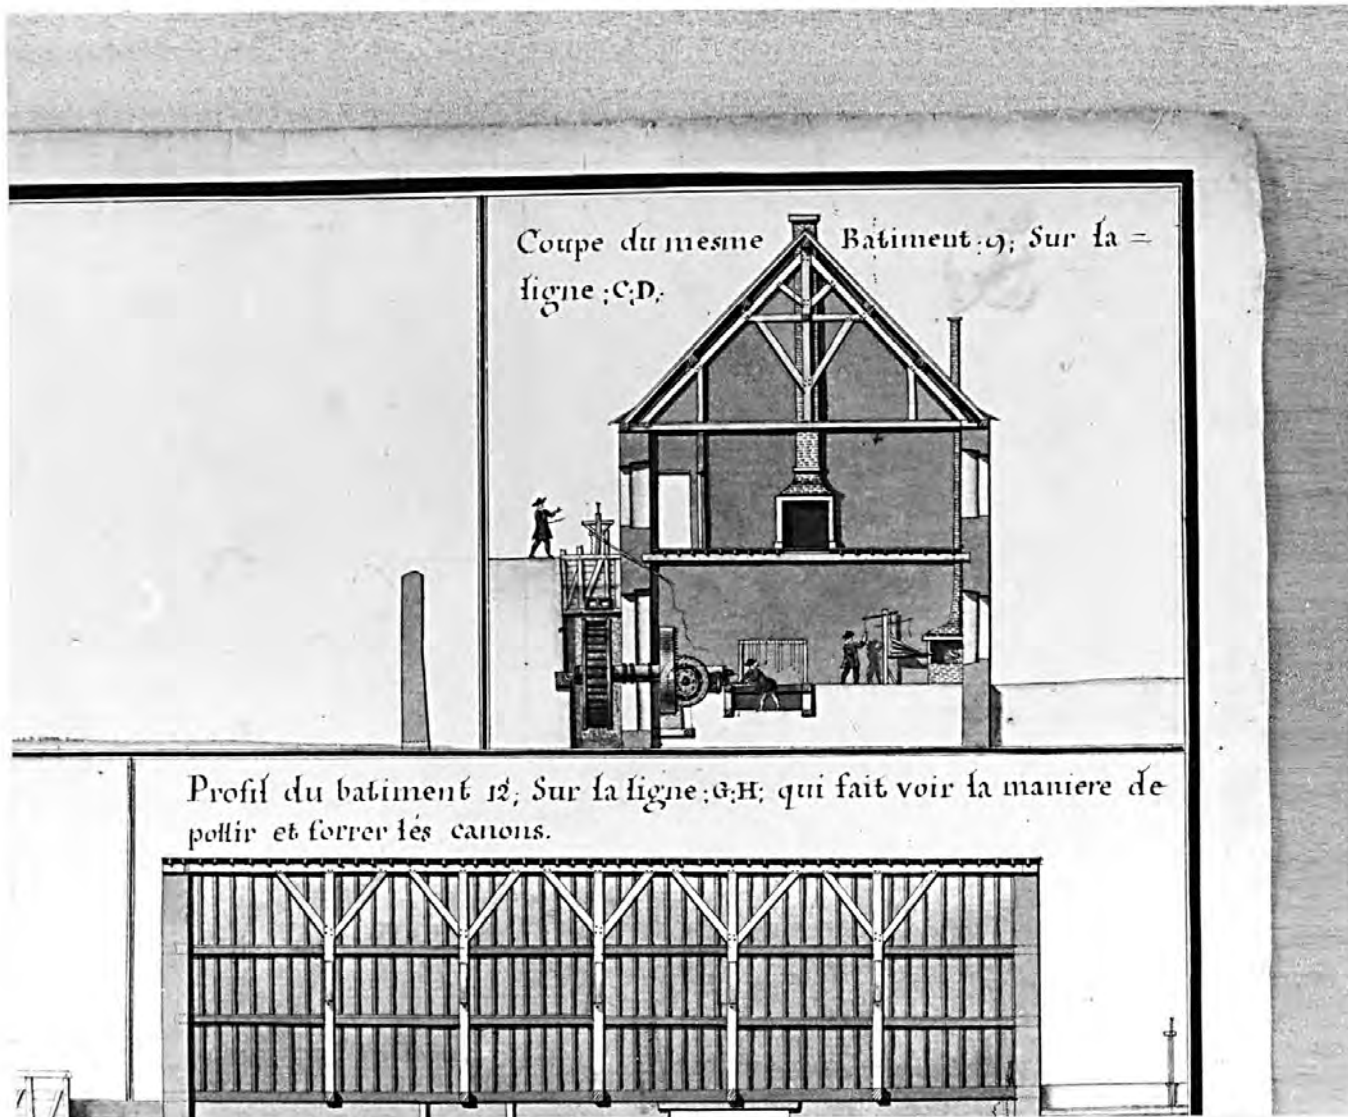 Coupe du mesme Batiment :9; Sur la =
ligne ;C;D;
Profil du batiment 12; Sur la ligne ;G;H; qui fait voir la maniere de
pollir et forrer les canons.